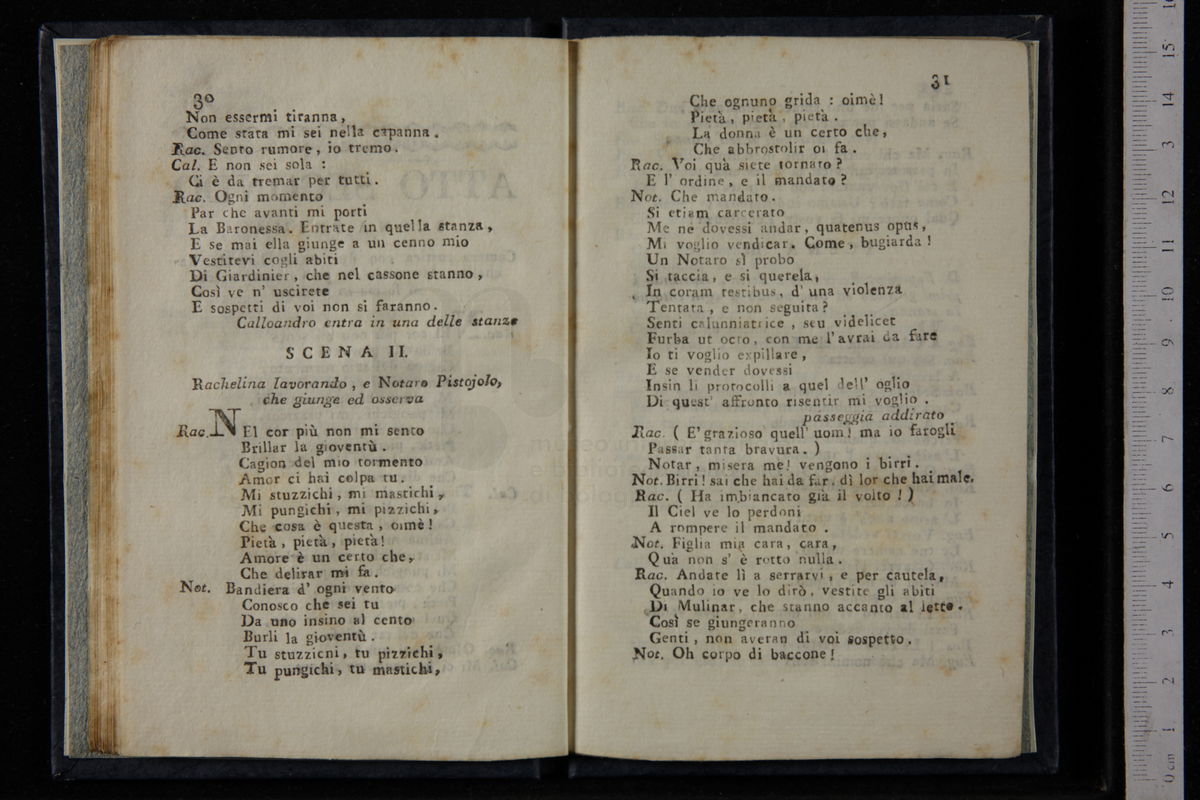 30
Non essermi tiranna,
Come stata mi sei nella capanna.
Rac. Sento rumore, io tremo.
Cal. E non sei sola:
Ci è da tremar per tutti.
Rac. Ogni momento
Par che avanti mi porti
La Baronessa. Entrate in quella stanza,
E se mai ella giunge a un cenno mio
Vestitevi cogli abiti
Di Giardinier, che nel cassone stanno,
Così ve n' uscirete
E sospetti di voi non si faranno.
Calloandro entra in una delle stanze
SCENA II.
Rachelina lavorando, e Notaro Pistojolo,
che giunge ed osserva
Rac. NEl cor più non mi sento
Brillar la gioventù.
Cagion del mio tormento
Amor ci hai colpa tu.
Mi stuzzichi, mi mastichi,
Mi pungichi, mi pizzichi,
Che cosa è questa, oimè!
Pietà, pietà, pietà!
Amore è un certo che,
Che delirar mi fa.
Not. Bandiera d' ogni vento
Conosco che sei tu
Da uno insino al cento
Burli la gioventù.
Tu stuzzichi, tu pizzichi,
Tu pungichi, tu mastichi,
31
Che ognuno grida : oimè!
Pietà, pietà, pietà.
La donna è un certo che,
Che abbrostolir ci fa.
Rac. Voi quà siete tornato?
E l' ordine, e il mandato?
Not. Che mandato.
Si etiam carcerato
Me ne dovessi andar, quatenus opus,
Mi voglio vendicar. Come, bugiarda!
Un Notaro sì probo
Si taccia, e si querela,
In coram testibus, d' una violenza
Tentata, e non seguita?
Senti calunniatrice, seu videlicet
Furba ut octo, con me l'avrai da fare
Io ti voglio expillare,
E se vender dovessi
Insin li protocolli a quel dell' oglio
Di quest' affronto risentir mi voglio.
passeggia addirato
Rac. ( E' grazioso quell' uom! ma io farogli
Passar tanta bravura. )
Notar, misera me! vengono i birri.
Not. Birri! sai che hai da far, dì lor che hai male.
Rac. ( Ha imbiancato già il volto! )
Il Ciel ve lo perdoni
A rompere il mandato.
Not. Figlia mia cara, cara,
Quà non s' è rotto nulla.
Rac. Andate lì a serrarvi, e per cautela,
Quando io ve lo dirò, vestite gli abiti
Di Mulinar, che stanno accanto al letto.
Così se giungeranno
Genti, non averan di voi sospetto.
Not. Oh corpo di baccone!